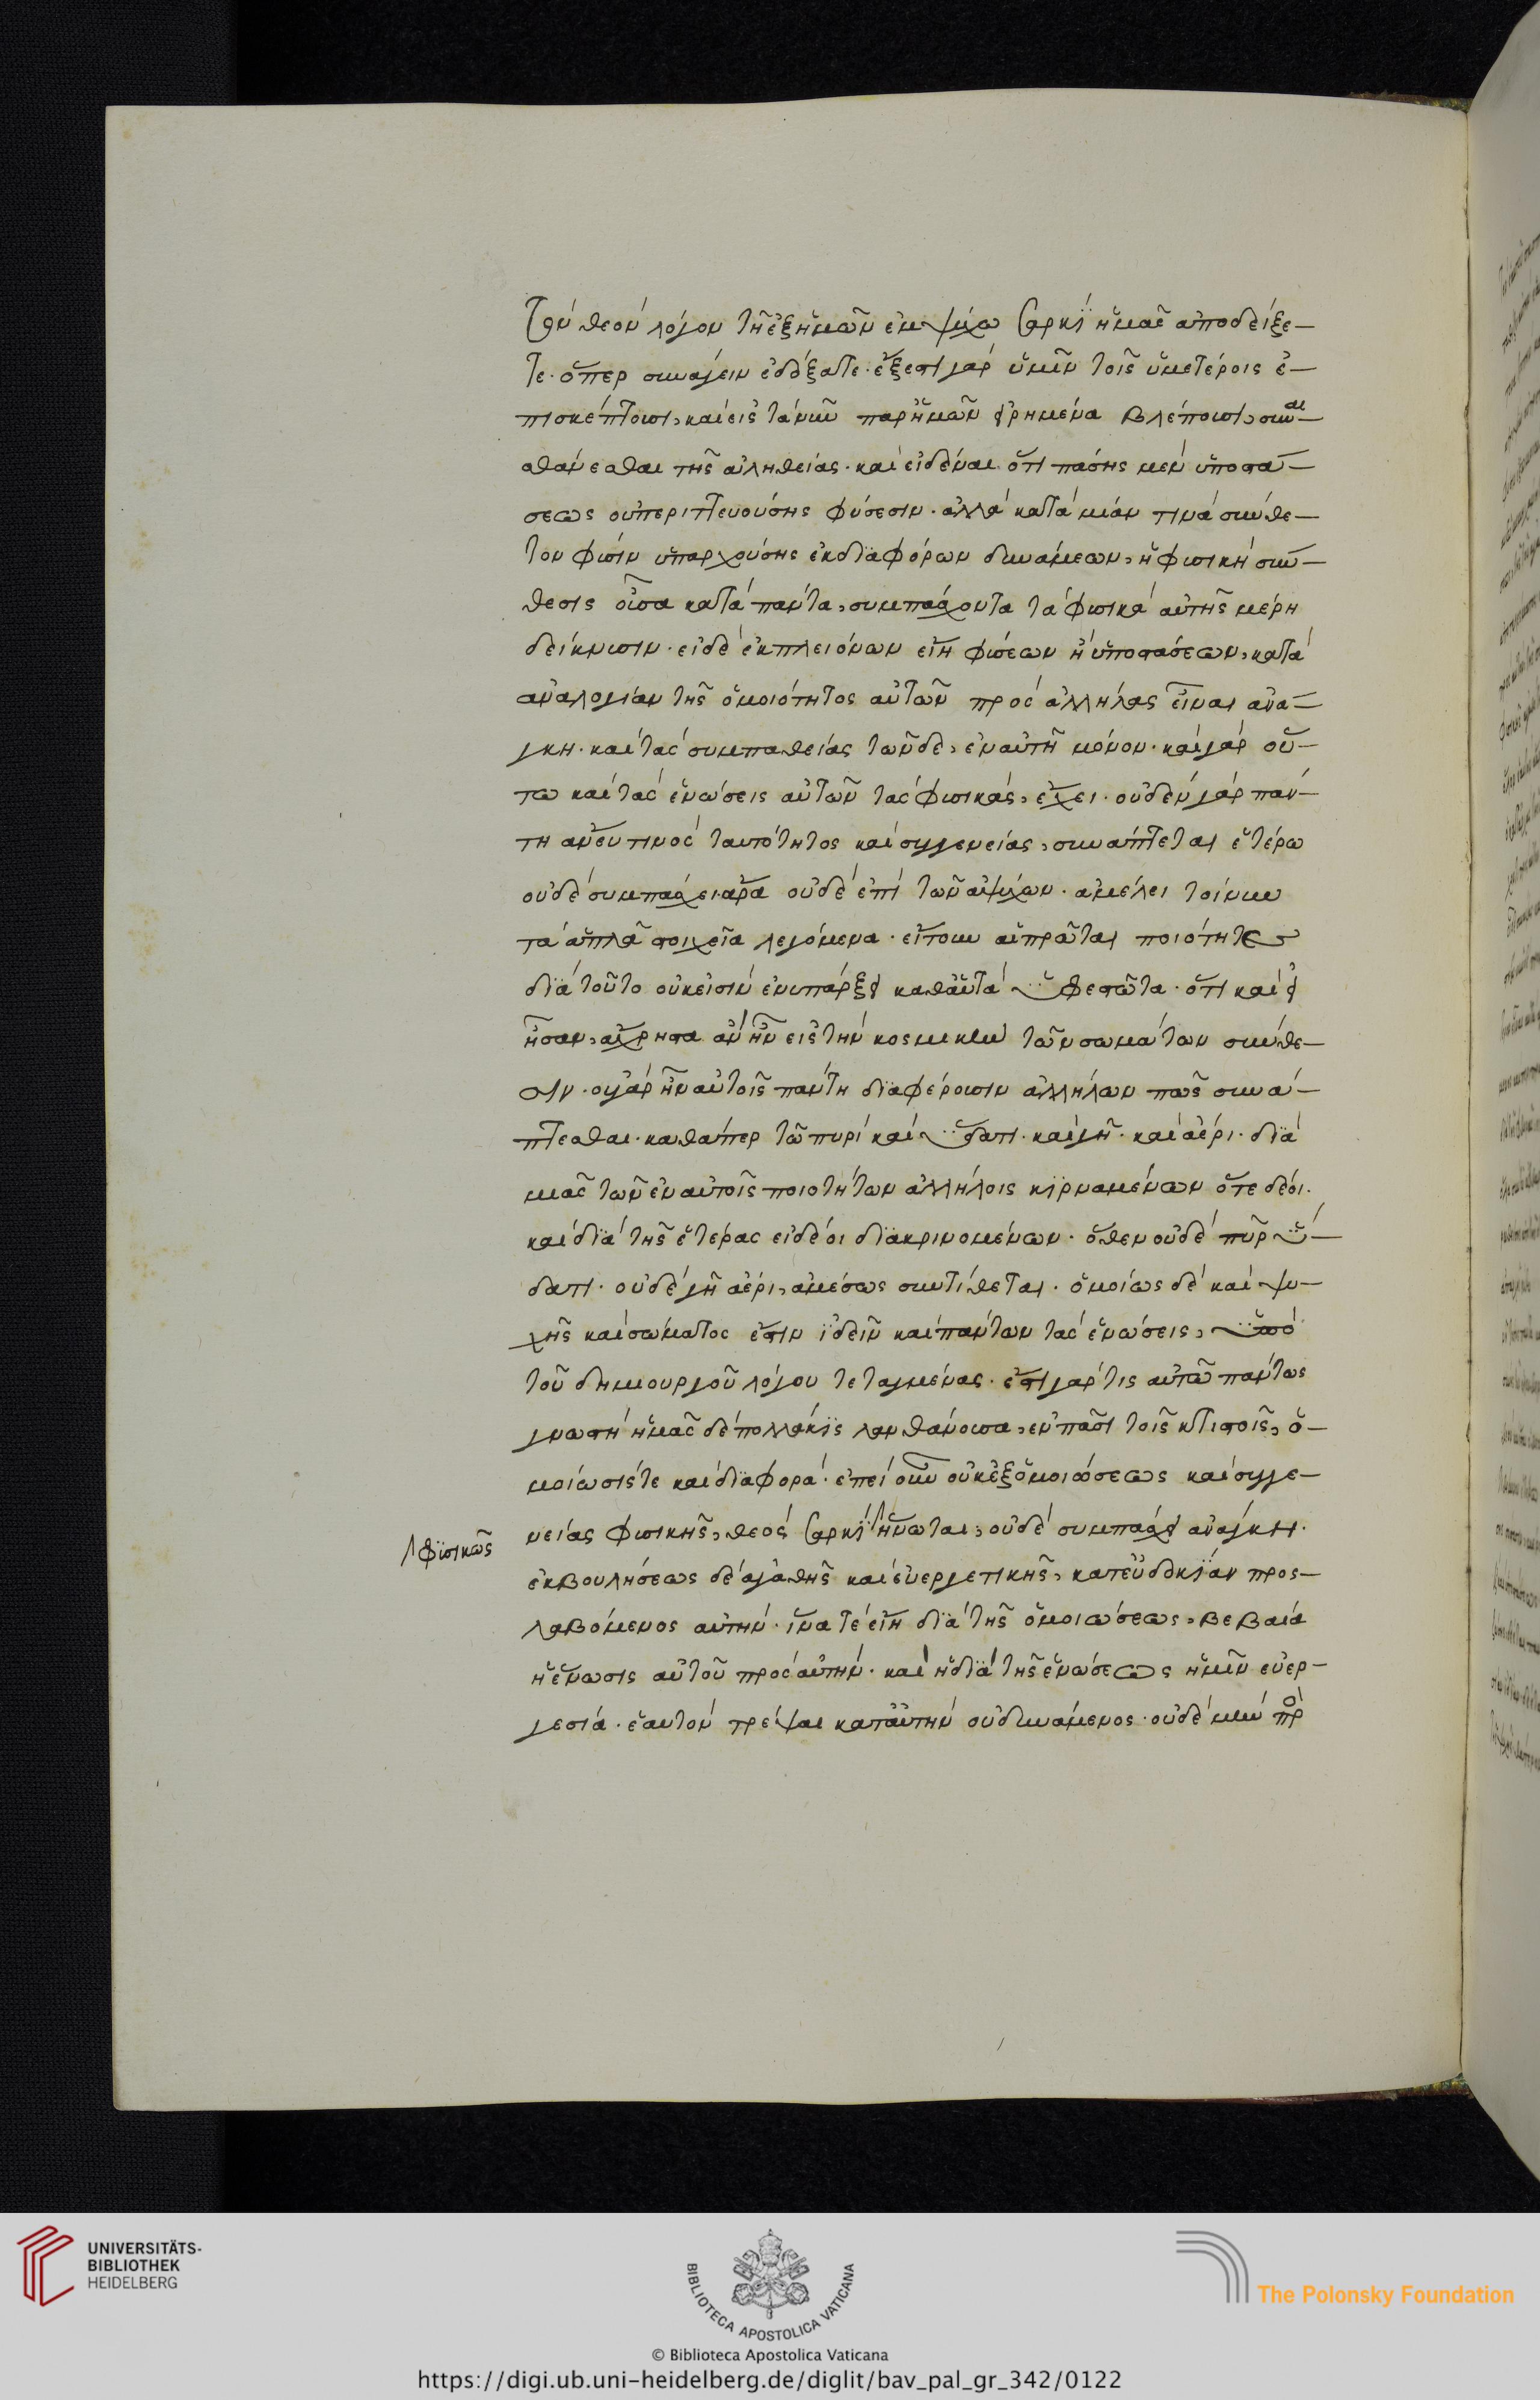 τὸν θεὸν λόγον τῆ ἐξ ἡμῶν ἐμψύχω σαρκὶ ἡμᾶς ἀποδείξε–
τε· ὅπερ συνάγειν ἐδόξατε· ἔξεστι γὰρ ὑμῖν τοῖς ὑμετέροις ἐ–
πισκέπτουσι, καὶ εἰς τὰ νῦν παρ' ἡμῶν εἰρημένα βλέπουσι, συναι–
σθάνεσθαι τῆς ἀληθείας· καὶ εἰδέναι ὅτι πάσης μὲν ὑποστά–
σεως οὐ περιττευούσης φύσεσιν· ἀλλὰ κατὰ μίαν τινὰ σύνθε–
τον φύσιν ὑπαρχούσης ἐκ διαφόρων δυνάμεων, ἡ φυσικὴ σύν–
θεσις οὖσα κατὰ πάντα, συμπάσχοντα τὰ φυσικὰ αὐτῆς μέρη
δείκνυσιν· εἰ δὲ ἐκ πλειόνων εἴη φύσεων ἡ ὑποστάσεων, κατὰ
ἀναλογίαν τῆς ὁμοιότητος αὐτῶν πρὸς ἀλλήλας εἶναι ἀνά–
γκη· καὶ τὰς συμπαθείας τῶνδε, ἐν αὐτῆ μόνον· καὶ γὰρ οὕ–
τω καὶ τὰς ἑνώσεις αὐτῶν τὰς φυσικὰς, ἔχει· οὐδὲν γὰρ πάν–
τη ἄνευ τινὸς ταυτότητος καὶ συγγενείας, συνάπτεται ἑτέρω
οὐδὲ συμπάσχει ἄρα οὐδὲ ἐπὶ τῶν ἀψύχων· ἀμέλει τοίνυν
τὰ ἁπλᾶ στοιχεῖα λεγόμενα· εἴτουν αἱ πρῶται ποιότητες
διὰ τοῦτο οὐκ εἰσὶν ἐν ὑπάρξει καθ' αὑτὰ ὑφεστῶτα· ὅτι καὶ εἰ
ἦσαν, ἄχρηστα ἂν ἦν εἰς τὴν κοσμικὴν τῶν σωμάτων σύνθε–
σιν· οὐ γὰρ ἦν αὐτοῖς πάντη διαφέρουσιν ἀλλήλων πως συνά–
πτεσθαι· καθάπερ τῶ πυρὶ καὶ ὕδατι· καὶ γῆ· καὶ ἀέρι· διὰ
μιᾶς τῶν ἐν αὐτοῖς ποιοτήτων ἀλλήλοις κιρναμένων ὅτε δέοι·
καὶ διὰ τῆς ἑτέρας εἰ δέοι διακρινομένων· ὅθεν οὐδὲ πῦρ ὕ–
δατι· οὐδὲ γῆ ἀέρι, ἀμέσως συντίθεται· ὁμοίως δὲ καὶ ψυ–
χῆς καὶ σώματος ἔστιν ἰδεῖν καὶ πάντων τὰς ἑνώσεις, ὑπὸ
τοῦ δημιουργοῦ λόγου τεταγμένας· ἔστι γάρ τις αὐτῶ πάντως
γνωστὴ ἡμᾶς δὲ πολλάκις λανθάνουσα, ἐν πᾶσι τοῖς κτιστοῖς, ὁ–
μοίωσίς τε καὶ διαφορά· ἐπεὶ οὖν οὐκ ἐξ ὁμοιώσεως καὶ συγγε–
νείας φυσικῆς, θεὸς σαρκὶ ἥνωται, οὐδὲ συμπάσχει ἀνάγκη·
φυσικῶς
ἐκ βουλήσεως δὲ ἀγαθῆς καὶ εὐεργετικῆς, κατ' εὐδοκίαν προς–
λαβόμενος αὐτήν· ἵνα τε εἴη διὰ τῆς ὁμοιώσεως, βεβαία
ἡ ἕνωσις αὐτοῦ πρὸς αὐτήν· καὶ ἡ διὰ τῆς ἑνώσεως ἡμῖν εὐερ–
γεσία· ἑαυτὸν τρέψαι κατ' αὐτὴν οὐ δυνάμενος· οὐδὲ μὴν πρὸ
UNIVERSITÄTS-
BIBLIOTHEK
HEIDELBERG
BIBLIOTECA APOSTOLICA VATICANA
The Polonsky Foundation
© Biblioteca Apostolica Vaticana
https://digi.ub.uni-heidelberg.de/diglit/bav_pal_gr_342/0122